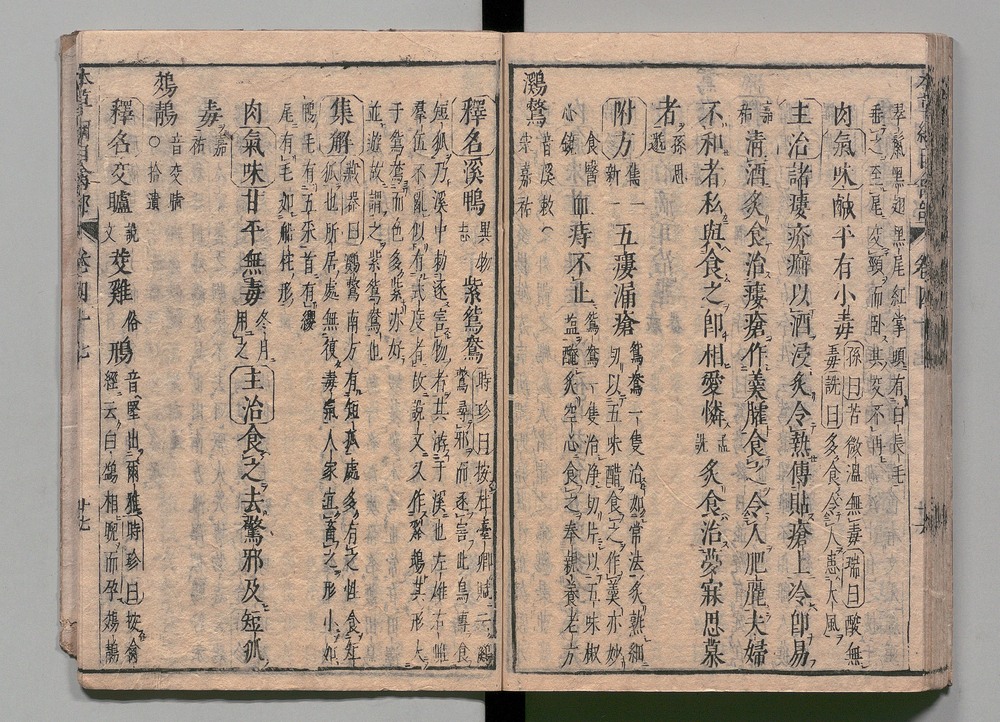 翠鬣黑翅黑尾紅掌頭有白長毛
垂之至尾交頸而臥其交不再
肉氣味鹹平有小毒孫曰苦微溫無毒瑞曰酸無
毒詵曰多食令人患大風
主治諸瘻疥癬以酒浸炙令熱傅貼瘡上冷卽易
嘉祐清酒炙食治瘻瘡作羹臛食之令人肥麗夫婦
不和者私與食之卽相愛憐孟詵炙食治夢寐思慕
者孫思邈
附方舊一新一五瘻漏瘡鴛鴦一隻治如常法炙熟細
切以五味醋食之作羹亦妙
食醫
心鏡血痔不止鴛鴦一隻治淨切片以五味椒
鹽醃炙空心食之奉親養老方
鸂鶒音溪敕
宋嘉祐
釋名溪鴨異物志紫鴛鴦時珍曰按杜臺卿賦云鸂
鶒尋邪而逐害此鳥專食
短狐乃溪中敕逐害物者其游于溪也左雄右雌
羣伍不亂似有式度者故說文又作溪鶒其形大
于鴛鴦而色多紫亦好
並遊故謂之紫鴛鴦也
集解藏器曰鸂鶒南方有短狐處多有之性食短
狐也所居處無復毒氣人家宜畜之形小如
鴨毛有五采首有纓
尾有毛如船柁形
肉氣味甘平無毒冬月用之主治食之去驚邪及短狐
毒嘉祐
鵁鶄音交睛
○拾遺
釋名交矑說文茭雞俗鳽音堅出爾雅時珍曰按禽
經云白鷁相睨而孕鵁鶄